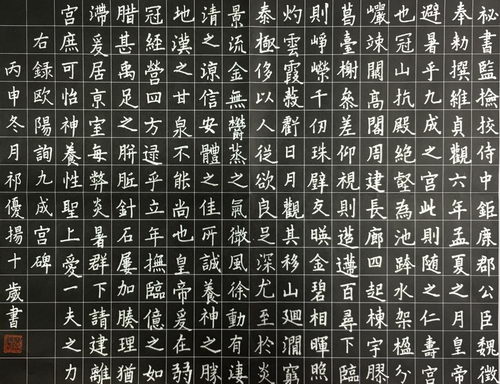 秘書監檢校侍中鉅鹿郡公臣魏徵
奉勅撰維貞觀六年孟夏之月皇帝
避暑乎九成之宮此則随之仁壽宮
也冠山抗殿絕壑為池跨水架楹分
巖竦闕高閣周建長廊四起棟宇膠
葛臺榭參差仰視則迢遰百尋下臨
則崢嶸千仞珠璧交暎金碧相暉照
灼雲霞蔽虧日月觀其移山迴澗窮
泰極侈以人從欲良足深尤至於炎
景流金無鬱蒸之氣微風徐動有凄
清之凉信安體之佳所誠養神之勝
地漢之甘泉不能尚也皇帝爰在弱
冠經營四方逮乎立年撫臨億之如
腊甚禹足之胼胝針石屢加腠理猶
滯爰居京室每弊炎暑群下請建離
宮庶可怡神養性聖上愛一夫之力
右錄歐陽詢九成宮碑
丙申冬月祁優揚十歲書